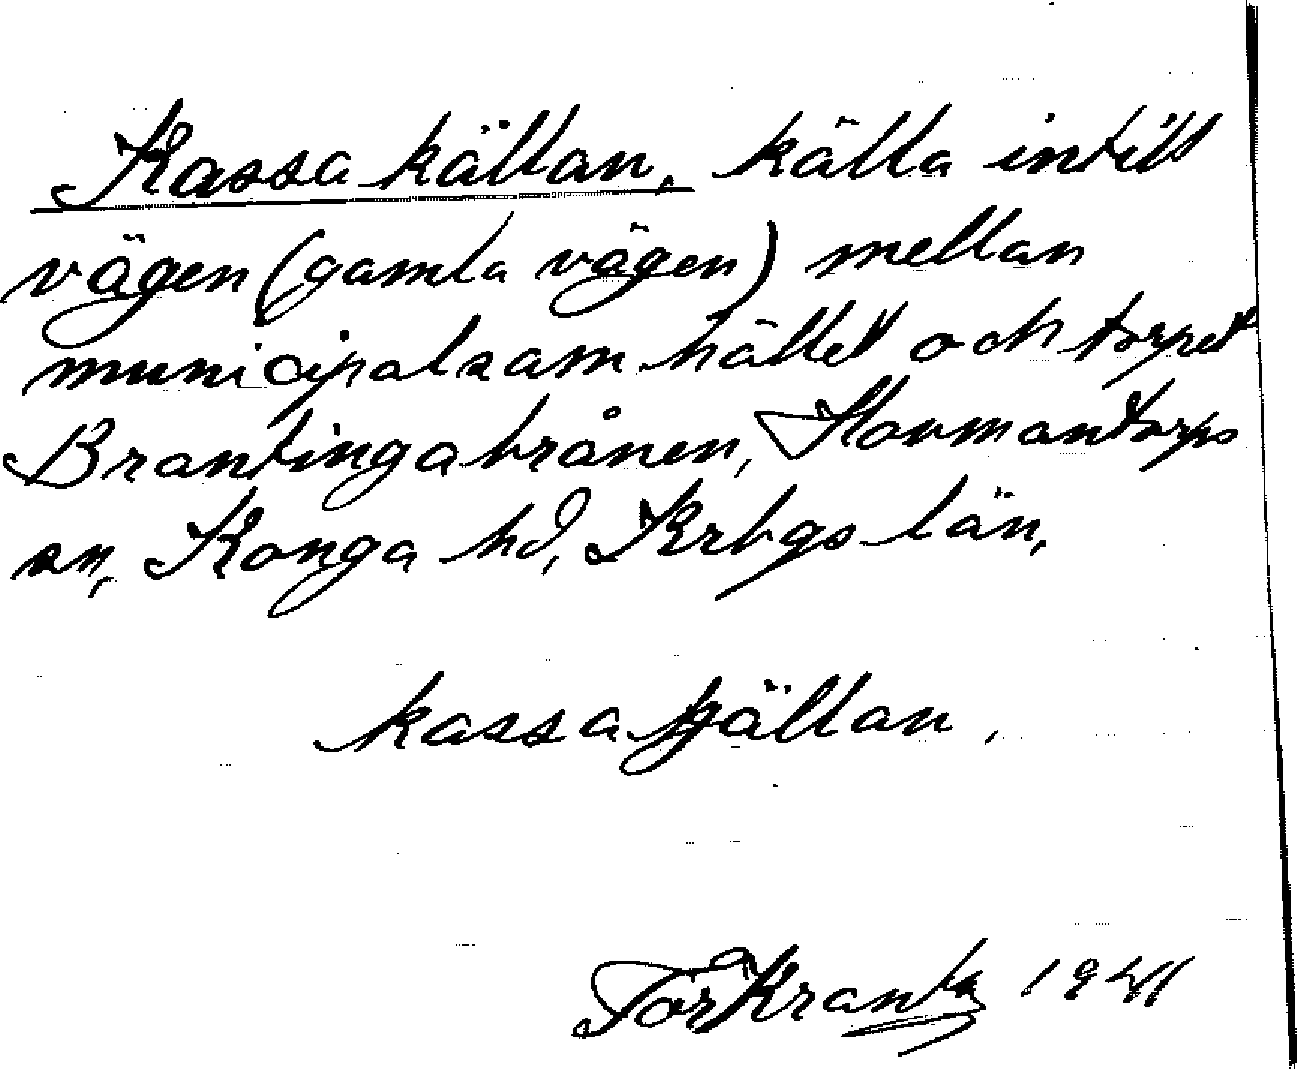 Kassakällan, källa intill
vägen (gamla vägen) mellan
municipalsamhället och torpet
Brantingabrånen, Hovmantorps
sn, Konga hd, Krbgs län,
kassakjällan,
Tor Krantz 1941